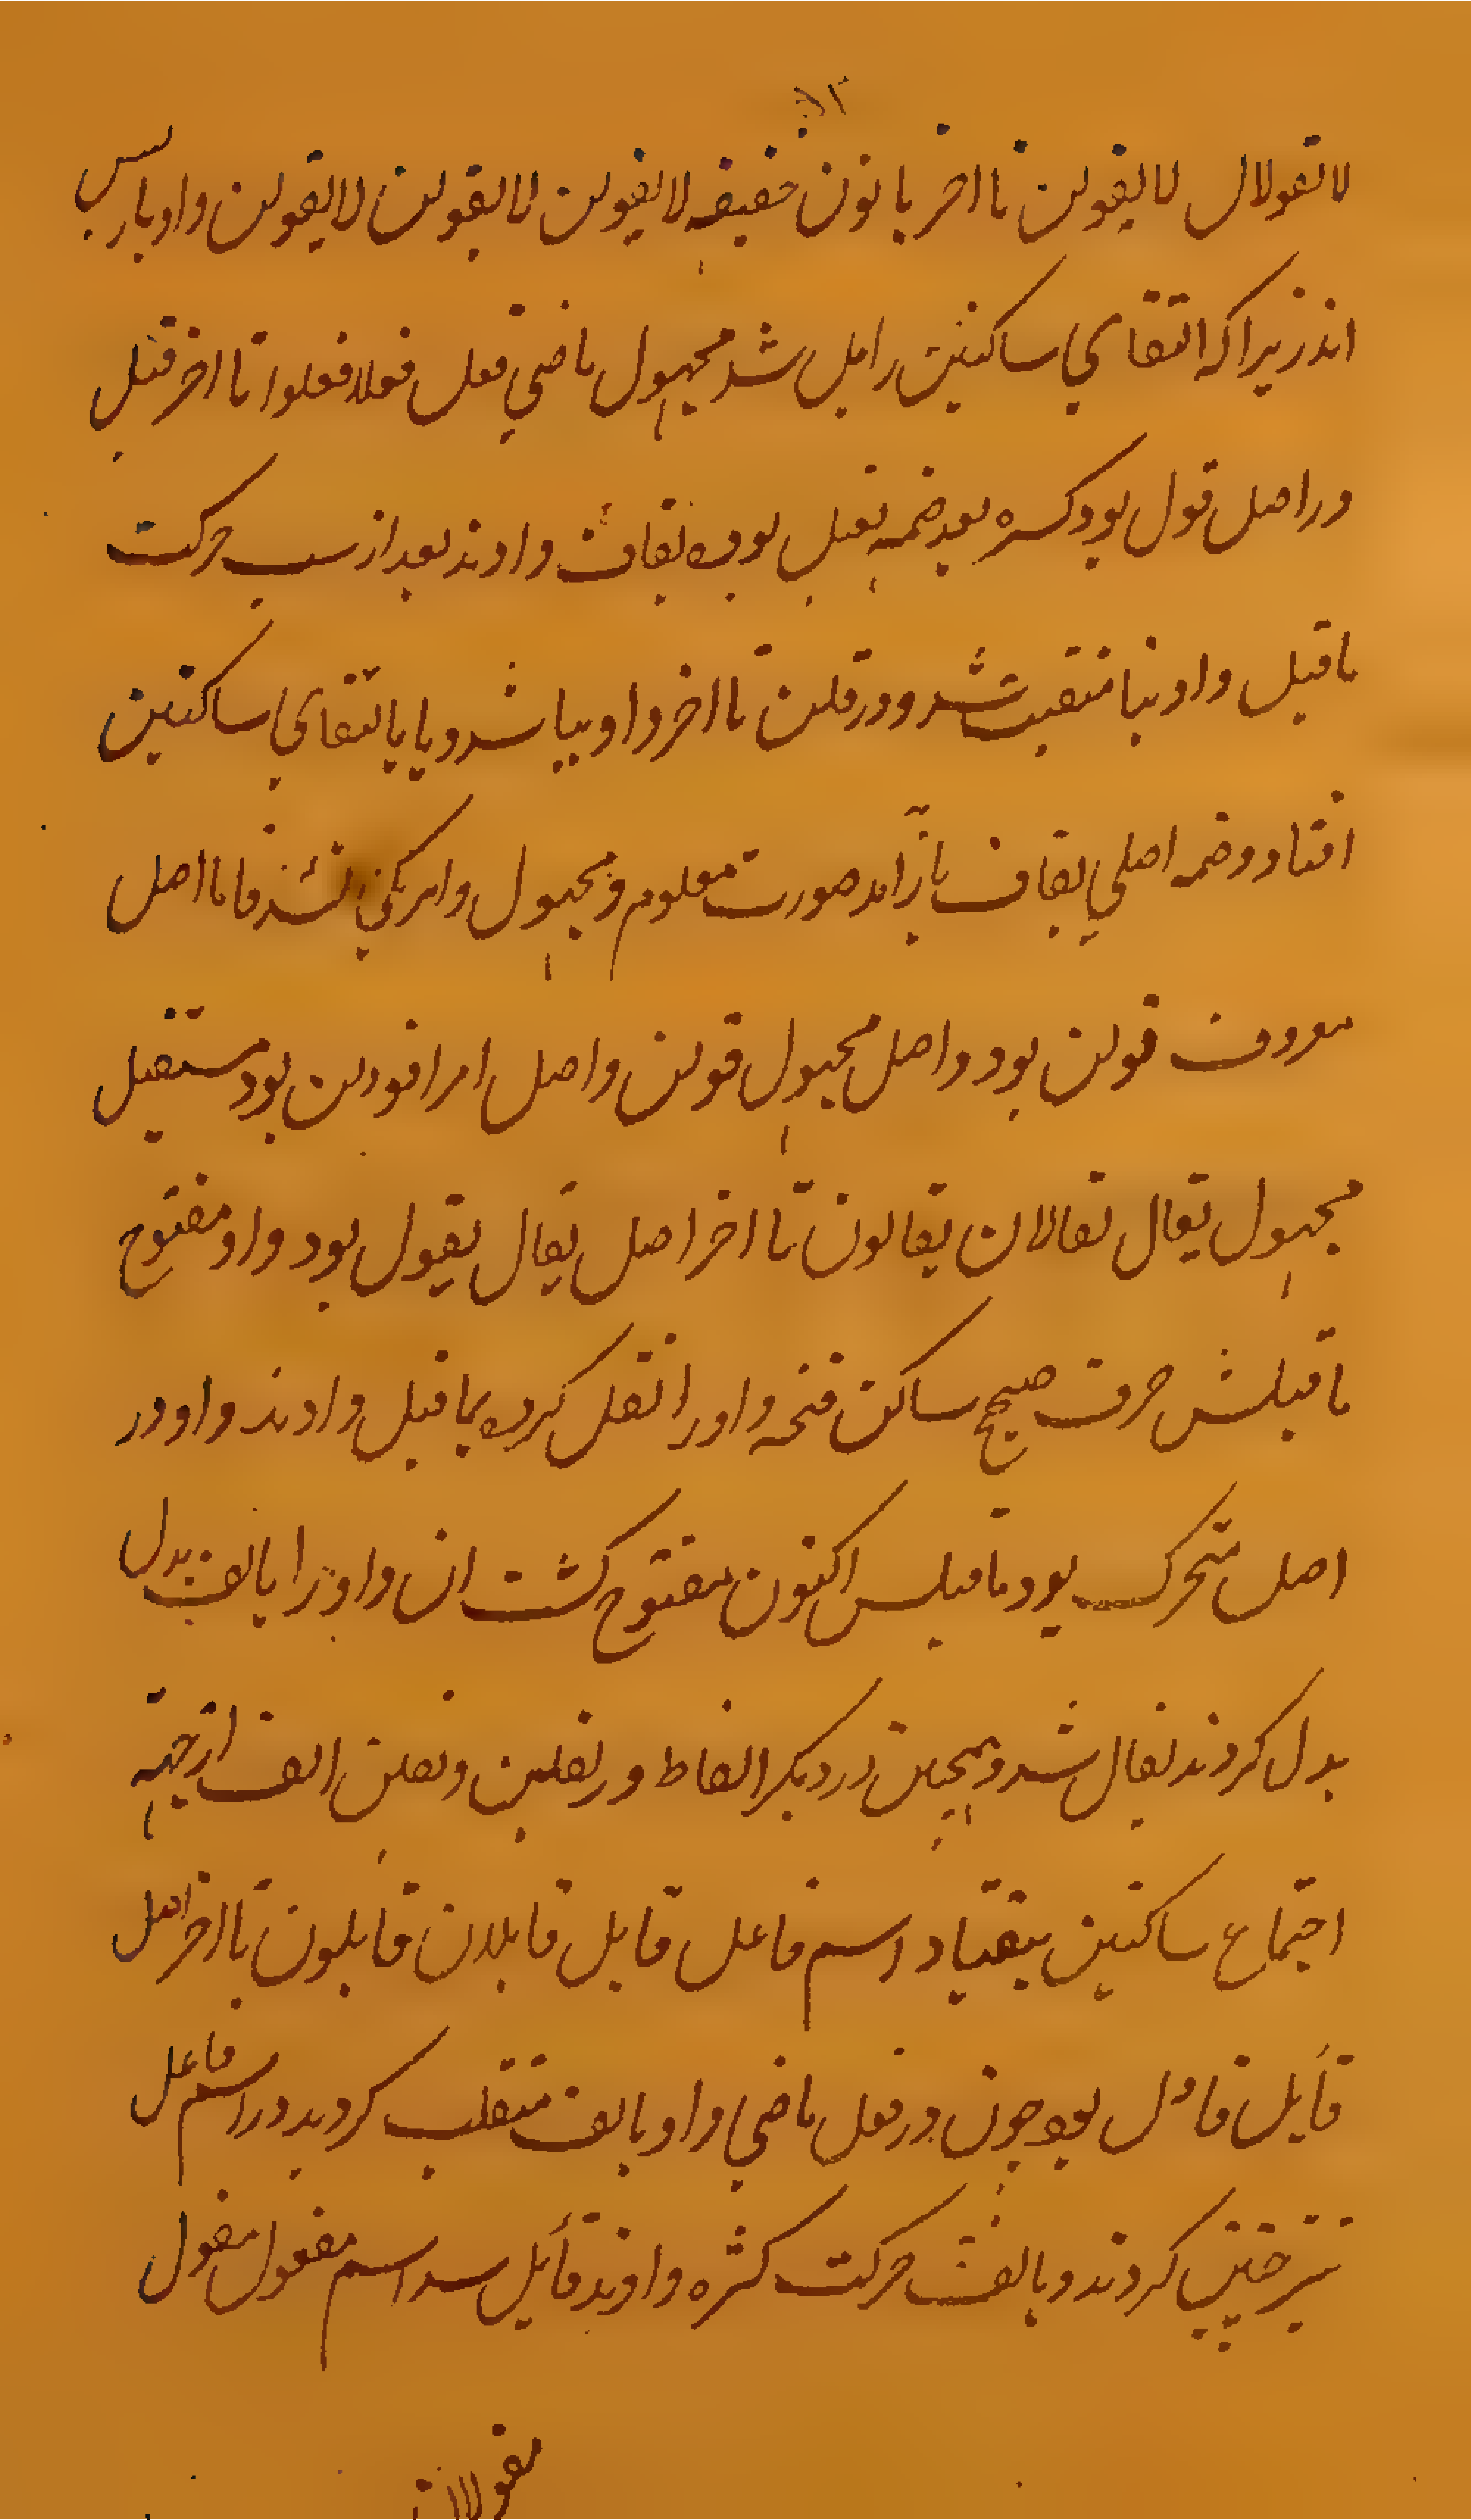 ۵۲
لا تقولال لا یقولن تا اخر با نون خفیفه لا یقولن لا یقولن لا یقولن واو باز پس
اند زیرا که التقای ساکنین زایل شد مجهول ماضی فعل فعلا فعلوا تا اخر قیل
در اصل قول بود کسره بعد ضمه ثقیل بود بقاف دادند بعد از سبب حرکت
ماقبل واو بیا منقلب شد و در قلن تا اخر واو بیا شد و یا بالتقای ساکنین
افتاد و ضمه اصلی بقاف باز آمد صورت معلوم و مجهول و امر یکی شد فاما اصل
معروف قولن بود و اصل مجهول قولن و اصل امر اقولن بود مستقبل
مجهول یقال یقالان یقالون تا اخر اصل یقال یقول بود واو مفتوح
ماقبلش حرف صحیح ساکن فتحه واو را نقل کرده بماقبل دادند واو در
اصل متحرک بود ماقبلس اکنون مفتوح کشت ان واو را بالف بدل
بدل کردند یقال شد و همچنین در دیکر الفاظ و در یقلن و تقلن الف از جهة
اجتماع ساکنین بیفتاد اسم فاعل قایل قایلان قایلون تا اخر اصل
قایل قاول بود چون در فعل ماضی واو بالف منقلب کردید در اسم فاعل
نیز چنین کردند و بالف حرکت کسره دادند قایل شد اسم مفعول مقول
مقولان